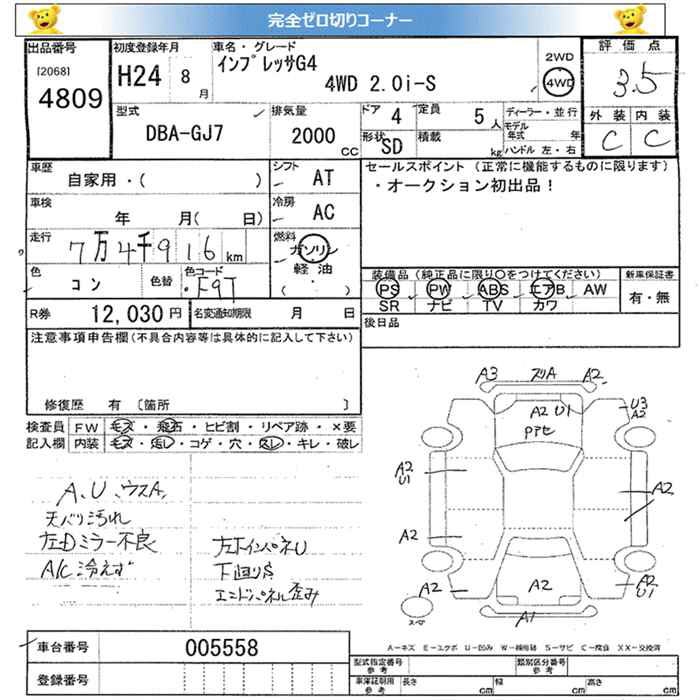 完全ゼロ切りコーナー
出品番号 [2068] 4809
初度登録年月 H24 8月
車名・グレード インプレッサG4 4WD 2.0i-S
2WD 4WD
評価点 3.5
型式 DBA-GJ7
排気量 2000 CC
ドア 4
定員 5人
ディーラー・並行
モデル年式 年
形状 SD
積載 kg
ハンドル 左・右
外装 内装
C C
車歴 自家用・( )
シフト AT
セールスポイント (正常に機能するものに限ります)
・オークション初出品!
車検 年 月( 日)
冷房 AC
走行 7万4千916km
燃料 ガソリン 軽油 ( )
色 コン
色替
色コード F9T
装備品(純正品に限り○をつけてください)
PS PW ABS エアB AW
SR ナビ TV カワ
新車保証書 有・無
R券 12,030円
名変通知期限 月 日
後日品
注意事項申告欄(不具合内容等は具体的に記入して下さい)
修復歴 有 〔箇所 〕
検査員 FW キズ・飛石・ヒビ割・リペア跡・×要
記入欄 内装 キズ・汚レ・コゲ・穴・スレ・キレ・破レ
A、U、ウスA
天バリ汚れ
左Dミラー不良
A/C冷えず
左下インパネU
下回りS
エンドパネル歪み
A3 スリA A2
A2 U1
U3
A2
A2
U1
A2
A2
A2
A2
A2
U1
A1
スペア
A−キズ E−エクボ U−凹み W−補修跡 S−サビ C−腐食 XX−交換済
車台番号 005558
登録番号
型式指定番号 参考
類別区分番号 参考
車庫証明用 参考 長さ cm 幅 cm 高さ cm